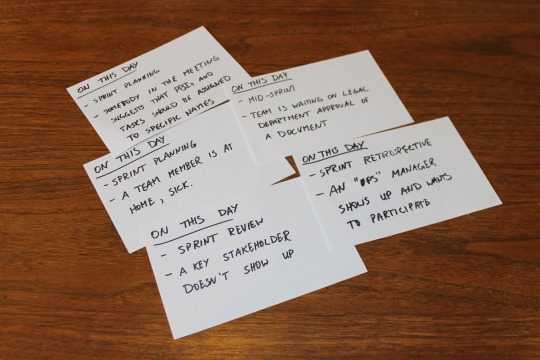 ON THIS DAY
- SPRINT PLANNING
- SOMEBODY IN THE MEETING
SUGGESTS THAT PBIs AND
TASKS SHOULD BE ASSIGNED
TO SPECIFIC NAMES
ON THIS DAY
- MID-SPRINT
- TEAM IS WAITING ON LEGAL
DEPARTMENT APPROVAL OF
A DOCUMENT
ON THIS DAY
- SPRINT PLANNING
- A TEAM MEMBER IS AT
HOME, SICK.
ON THIS DAY
- SPRINT RETROSPECTIVE
- AN "OPS" MANAGER
SHOWS UP AND WANTS
TO PARTICIPATE
ON THIS DAY
- SPRINT REVIEW
- A KEY STAKEHOLDER
DOESN'T SHOW UP